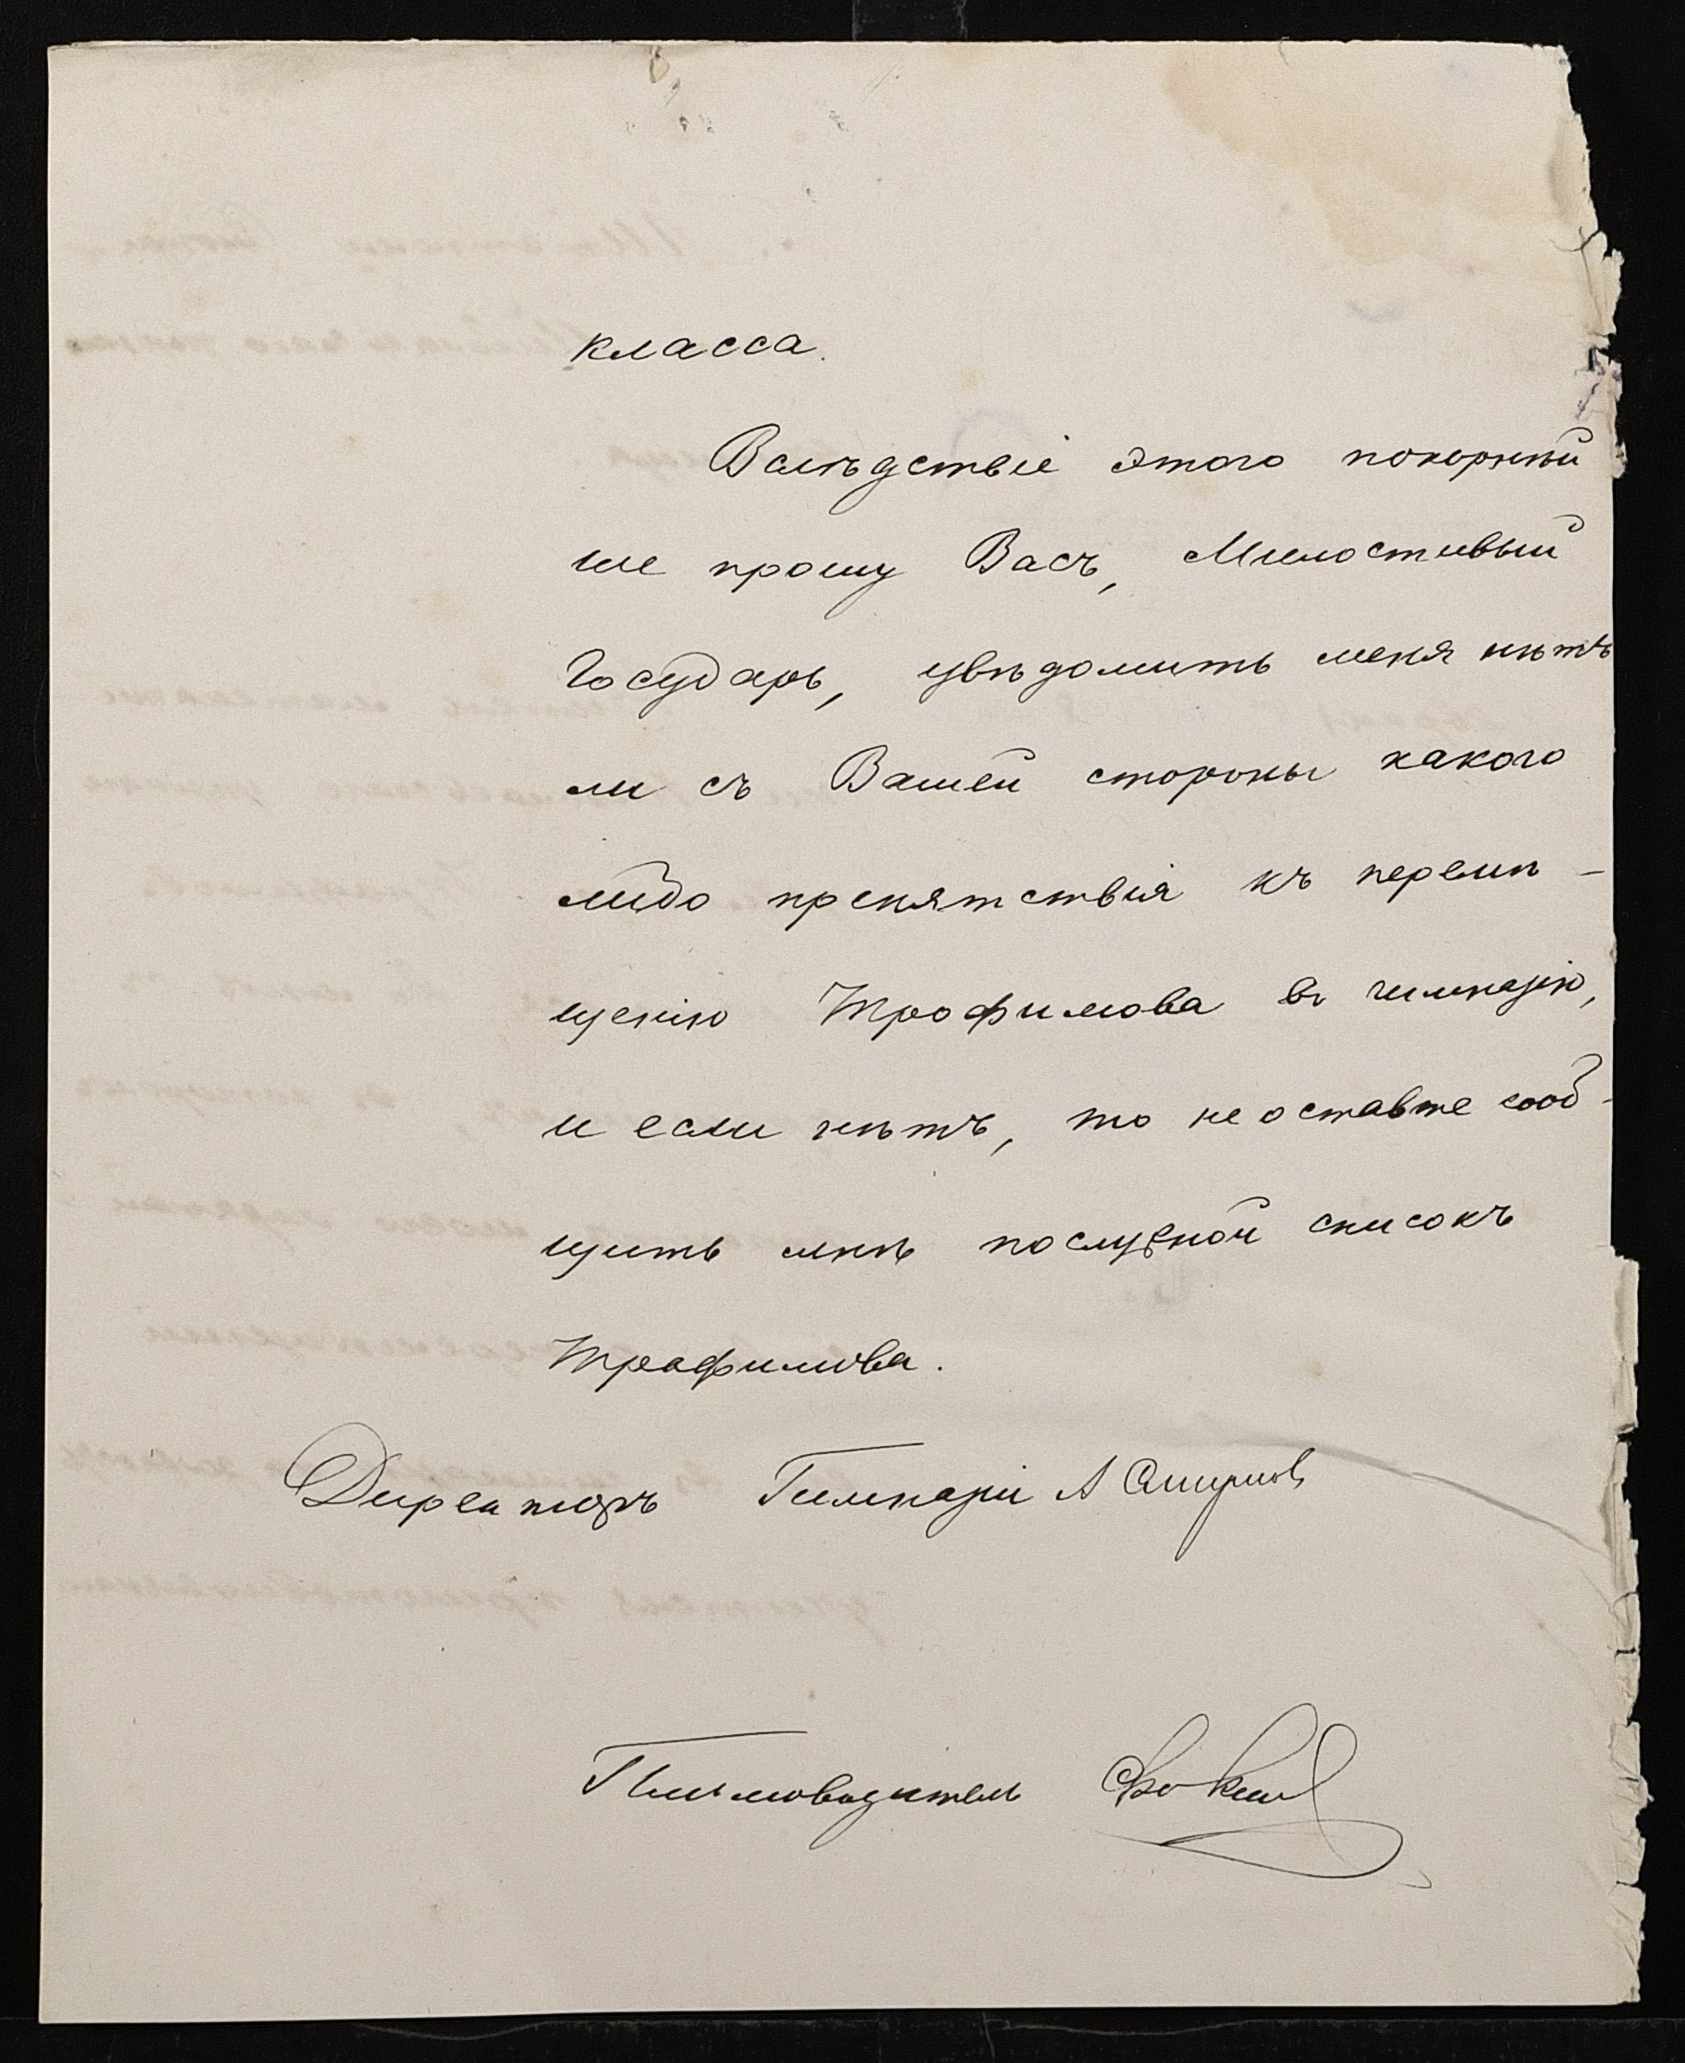 класса.
Вслѣдствіе этого покорнѣй
ше прошу Васъ, Милостивый
Государь, увѣдомить меня нѣтъ
ли съ Вашей стороны какого
либо препятствія къ перемѣ-
щенію Трофимова въ гимназію,
и если нѣтъ, то не оставте сооб-
щить мнѣ послужной списокъ
Трофимова.
Директоръ Гимназіи А Смирновъ
Письмоводитель